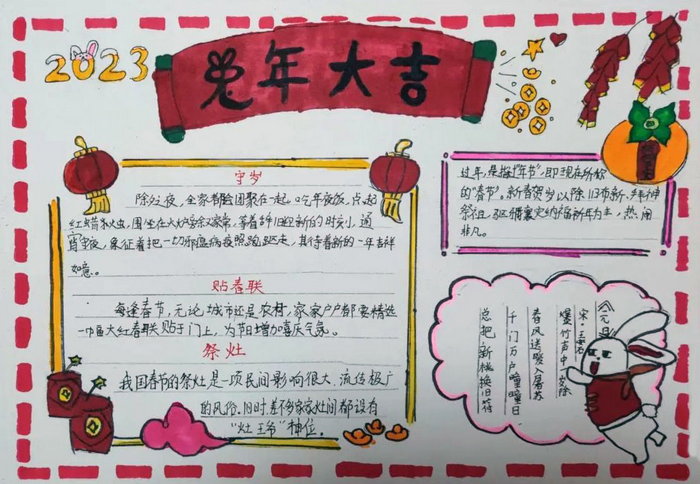 2023
兔年大吉
守岁
除夕夜,全家都会团聚在一起。吃年夜饭,点起
红蜡烛火,围坐在火炉旁叙家常,等着辞旧迎新的时刻,通
宵守夜,象征着把一切邪瘟病疫照跑驱走,期待着新的一年吉祥
如意。
贴春联
每逢春节,无论城市还是农村,家家户户都要精选
一幅大红春联贴于门上,为节日增加喜庆气氛。
祭灶
我国春节的祭灶是一项民间影响很大、流传极广
的风俗。旧时,差不多家家灶间都设有
“灶王爷”神位。
过年,是指“年节”,即现在所称
的“春节”。新春贺岁以除旧布新、拜神
祭祖、纳福祈年为主,热闹
非凡。
《元日
宋·王安石
爆竹声中一岁除
春风送暖入屠苏
千门万户曈曈日
总把新桃换旧符